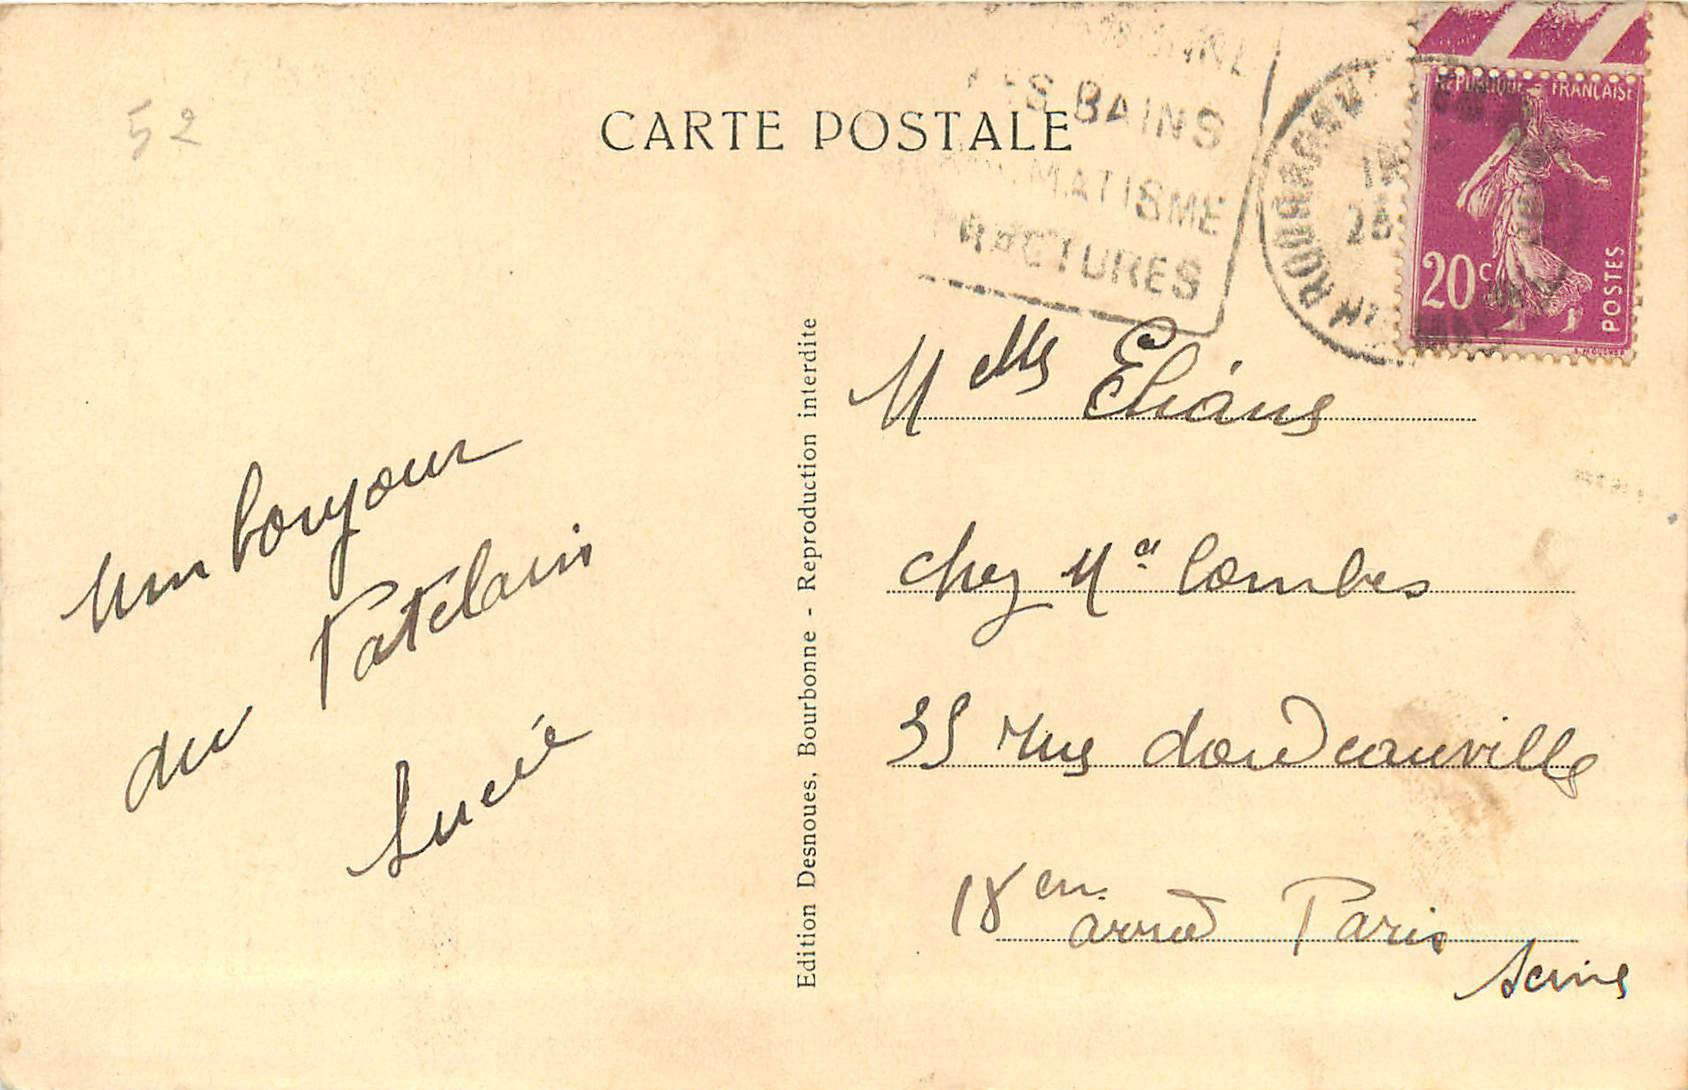 52
CARTE POSTALE
BAINS
FRACTURES
RÉPUBLIQUE FRANÇAISE
20c
POSTES
Edition Desnoues, Bourbonne - Reproduction interdite
Un bonjour
du Patelain
Lucie
Melle Eliane
chez Me Combes
35 rue
18em arrd Paris
Seine